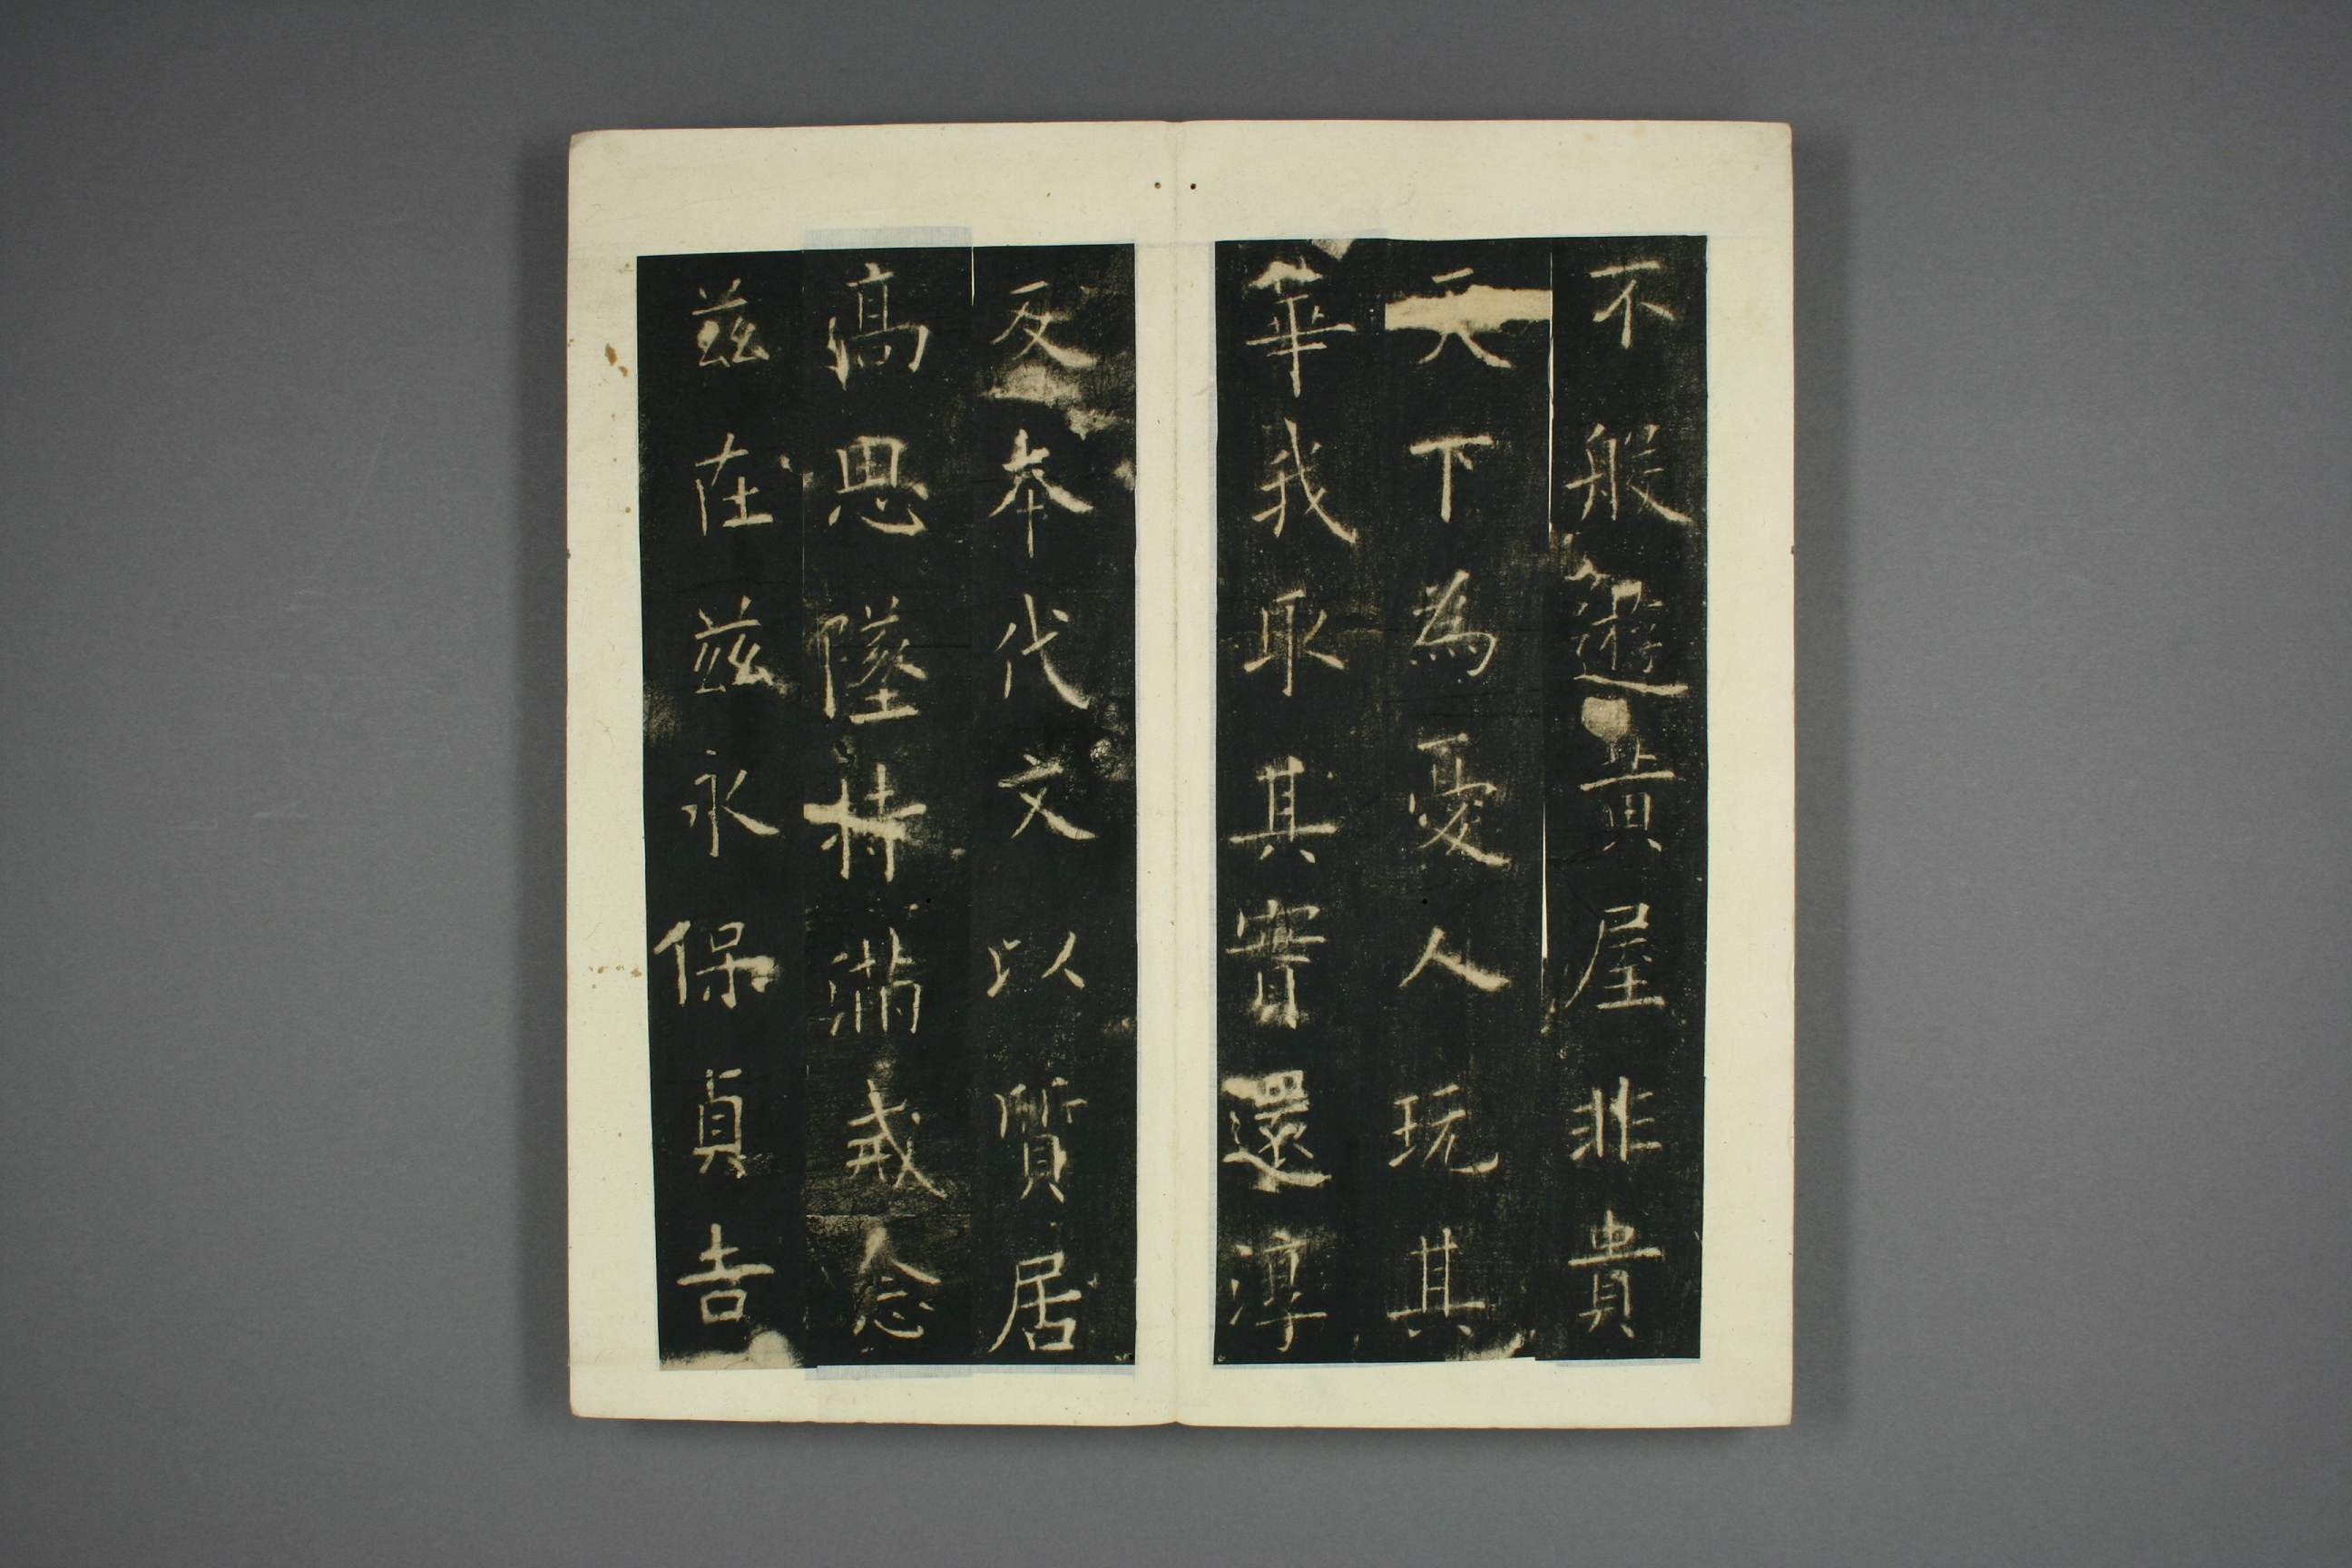 不般遊黃屋非貴
天下為憂人玩其
華我取其實還淳
反夲代文以質居
高思墜持滿戒念
茲在茲永保貞吉